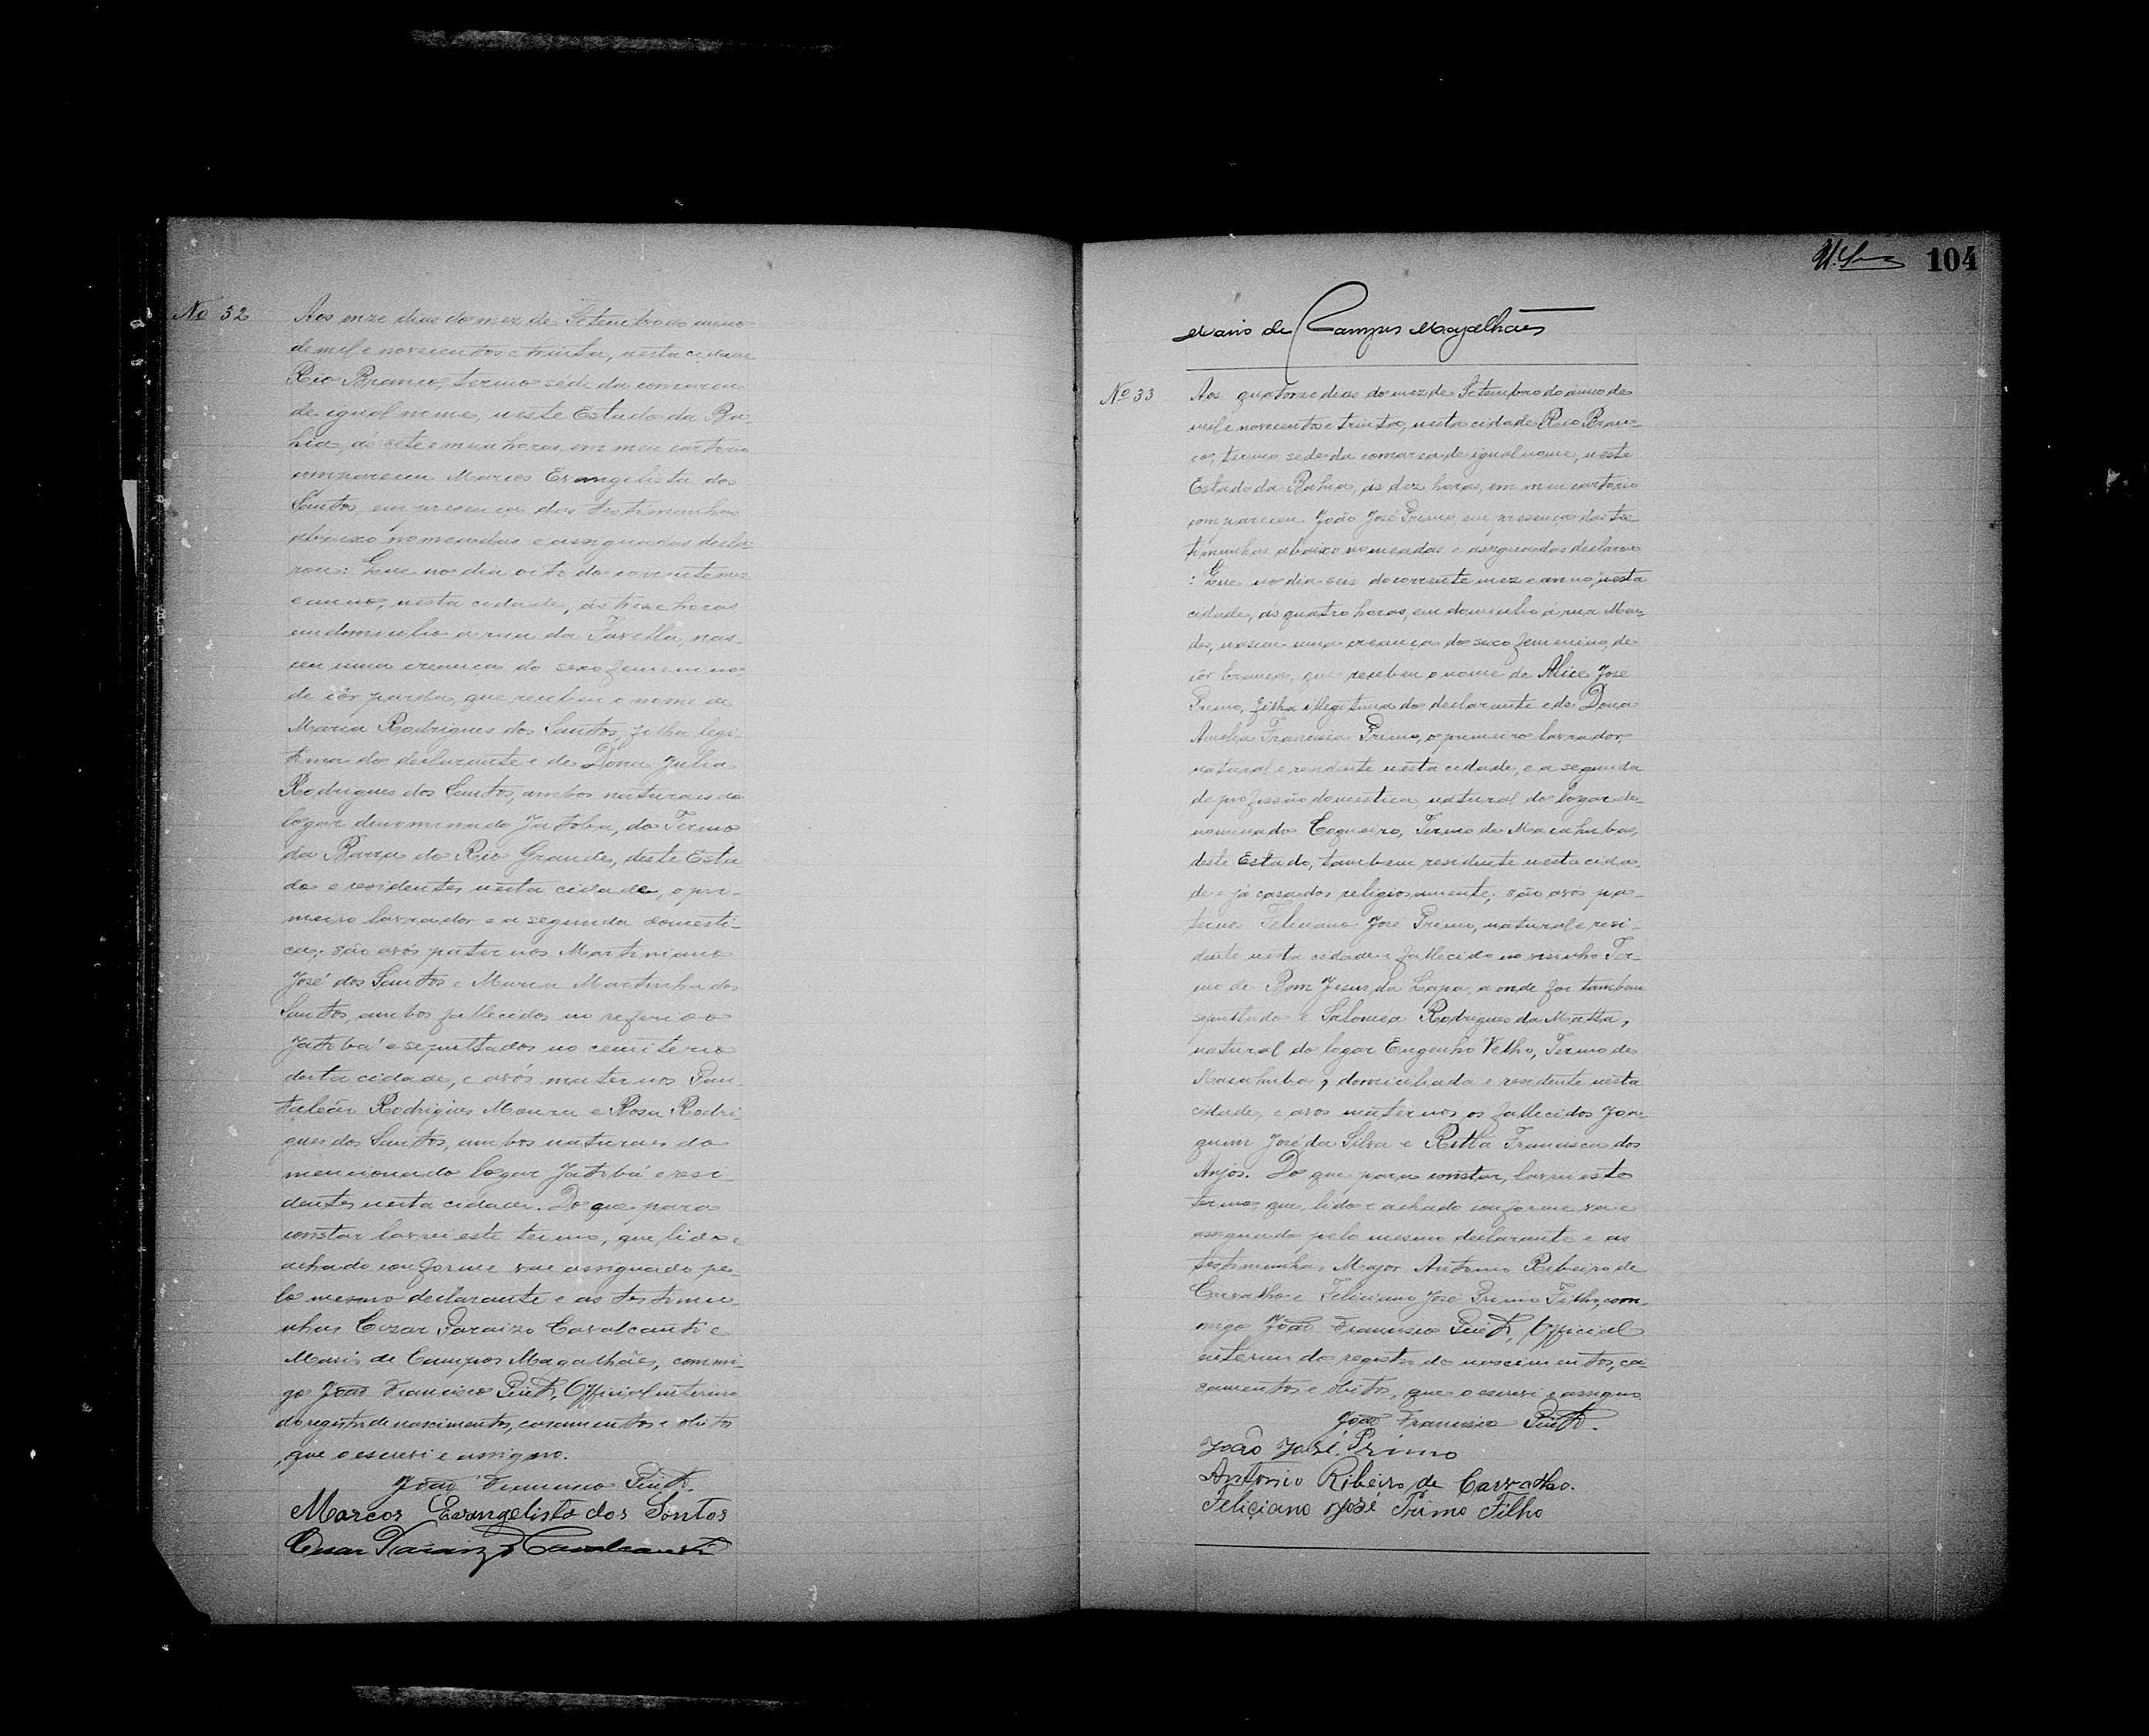 Nº 32
Aos onze dias do mez de Setembro do anno
de mil e novecentos e trinta, nesta cidade
Rio Branco, termo séde da comarca
de igual nome, neste Estado da Ba-
hia, ás sete e meia horas, em meu cartorio
compareceu Marcos Evangelista dos
Santos, em presença das testimunhas
abaixo nomeadas e assignadas decla-
rou: Que no dia oito do corrente mez
e anno, nesta cidade, ás treze horas
em domicilio a rua da Favella, nas-
ceu uma creança do sexo femenino
de côr parda, que recebeu o nome de
Maria Rodrigues dos Santos, filha legi-
tima do declarante e de Dona Julia
Rodrigues dos Santos, ambos naturaes do
logar denominado Jatoba, do Termo
da Barra do Rio Grande, deste Esta
do e residentes nesta cidade, o pri-
meiro lavrador e a segunda domesti-
ca; são avós paternos Martiniano
José dos Santos e Maria Martinha dos
Santos, ambos fallecidos no referido
Jatobá e sepultados no cemiterio
desta cidade, e avós maternos Pan-
taleão Rodrigues Moura e Rosa Rodri-
gues dos Santos, ambos naturaes do
mencionado logar Jatobá e resi-
dentes nesta cidade. Do que para
constar lavrei este termo, que, lido e
achado conforme vae assignado pe-
lo mesmo declarante e as testimu-
nhas Cezar Paraizo Cavalcanti e
Mario de Campos Magalhães, commi-
go João Francisco Official interino
do registro de nascimentos, casamentos e obitos
, que o escrevi e assigno.
João Francisco
Marcos Evangelista dos Santos
Cezar Paraizo Cavalcanti
104
Mario de Campos Magalhães
Nº 33
Aos quatorze dias do mez de Setembro do anno de
mil e novecentos e trinta, nesta cidade Rio Bran-
co, termo sede da comarca de igual nome, neste
Estado da Bahia, ás dez horas, em meu cartorio
compareceu João José Primo, em presença das tes
timunhas abaixo nomeadas e assignadas declarou
: Que no dia seis do corrente mez e anno, nesta
cidade, ás quatro horas, em domicilio á rua
nasceu uma creança do sexo femenino, de
côr branca, que recebeu o nome de Alice José
Primo, filha illegitima do declarante e de Dona
Amelia Francisca Primo, o primeiro lavrador,
natural e residente nesta cidade, e a segunda
de profissão domestica, natural do logar de-
nominado Coqueiro, Termo de Macahubas,
deste Estado, tambem residente nesta cida
de e já casados religiosamente; são avós pa-
ternos Feliciano José Primo, natural e resi-
dente nesta cidade e fallecido no visinho Ter-
mo de Bom Jesus da Lapa, a onde foi tambem
sepultado e Salomea Rodrigues da Matta,
natural do logar Engenho Velho, Termo de
Macahubas, domiciliada e residente nesta
cidade, e avos maternos os fallecidos Joa-
quim José da Silva e Ritta Francisca dos
Anjos. Do que para constar, lavrei este
termo, que, lido e achado conforme vae
assignado pelo mesmo declarante e as
testimunhas Major Antonio Ribeiro de
Carvalho e Feliciano José Primo Filho, com-
migo João Francisco Official
interino do registro de nascimentos, ca-
samentos e obitos, que o escrevi e assigno.
João Francisco
João José Primo
Antonio Ribeiro de Carvalho.
Feliciano José Primo Filho